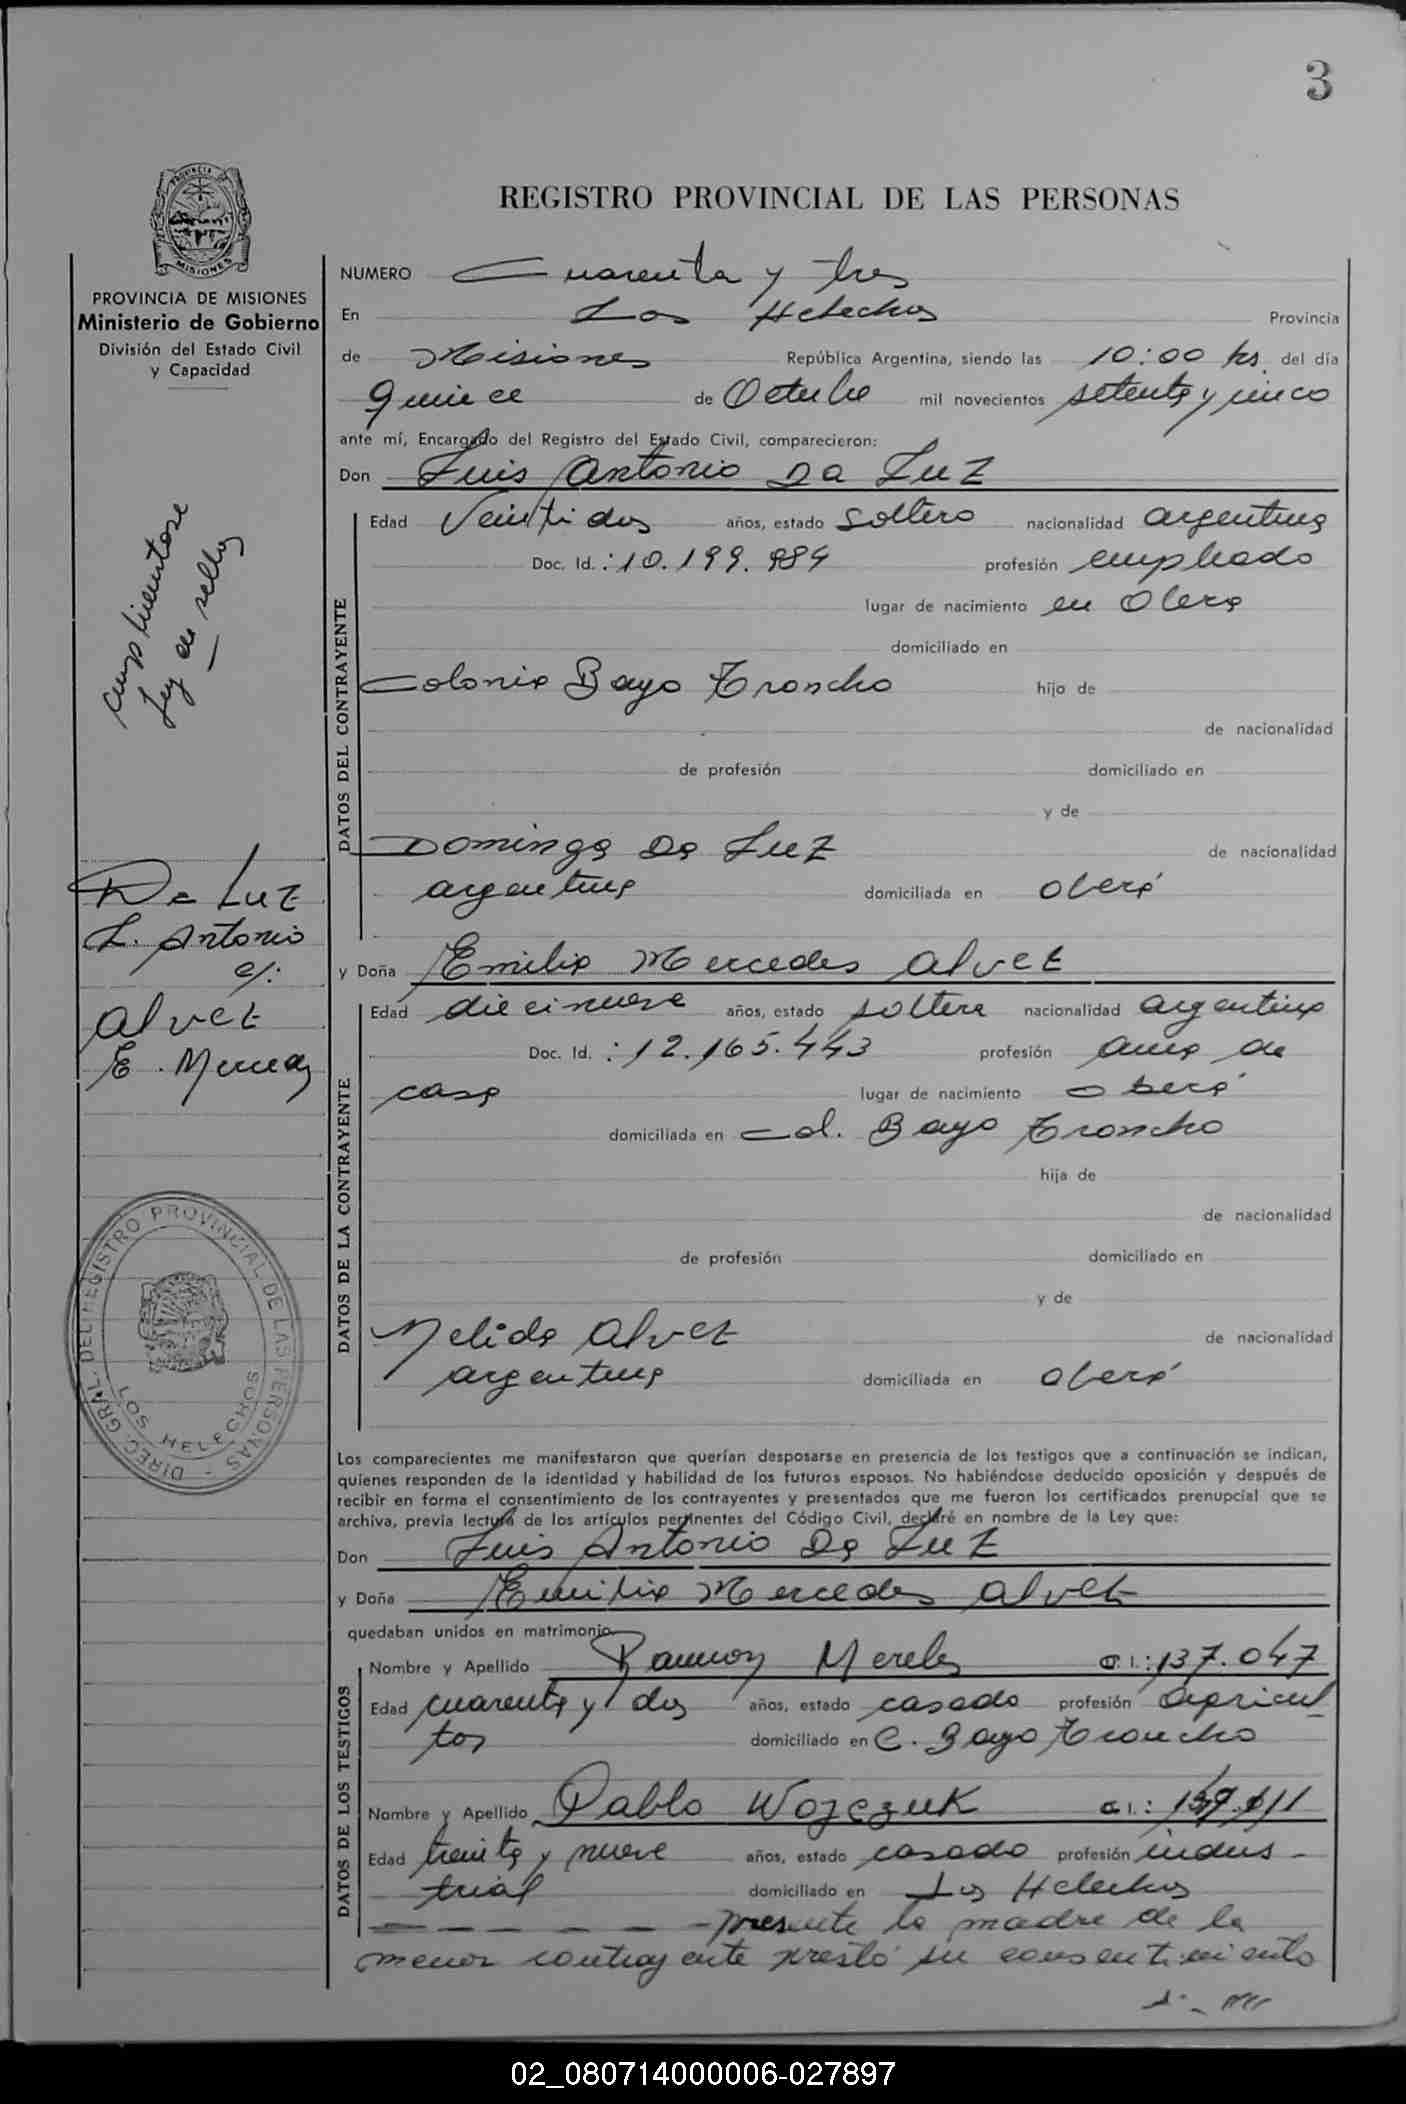 3
PROVINCIA DE
MISIONES
REGISTRO PROVINCIAL DE LAS PERSONAS
PROVINCIA DE MISIONES
Ministerio de Gobierno
División del Estado Civil
y Capacidad
NUMERO Cuarenta y tres
En Los Helechos Provincia
de Misiones República Argentina, siendo las 10:00 hs. del día
quince de Octubre mil novecientos setenta y cinco
ante mí, Encargado del Registro del Estado Civil, comparecieron:
Don Luis Antonio Da Luz
DATOS DEL CONTRAYENTE
Edad Veintidos años, estado soltero nacionalidad argentina
Doc. Id.: 10.199.984 profesión empleado
lugar de nacimiento en Obera
domiciliado en
Colonia Bayo Troncho hijo de
de nacionalidad
de profesión domiciliado en
y de
Dominga Da Luz de nacionalidad
argentina domiciliada en Oberá
y Doña Emilia Mercedes Alvez
DATOS DE LA CONTRAYENTE
Edad diecinueve años, estado soltera nacionalidad argentina
Doc. Id.: 12.165.443 profesión ama de
casa lugar de nacimiento Oberá
domiciliada en Col. Bayo Troncho
hija de
de nacionalidad
de profesión domiciliado en
y de
Nelida Alvez de nacionalidad
argentina domiciliada en Oberá
Los comparecientes me manifestaron que querían desposarse en presencia de los testigos que a continuación se indican,
quienes responden de la identidad y habilidad de los futuros esposos. No habiéndose deducido oposición y después de
recibir en forma el consentimiento de los contrayentes y presentados que me fueron los certificados prenupcial que se
archiva, previa lectura de los artículos pertinentes del Código Civil, declaré en nombre de la Ley que:
Don Luis Antonio Da Luz
y Doña Emilia Mercedes Alvez
quedaban unidos en matrimonio
DATOS DE LOS TESTIGOS
Nombre y Apellido Ramon Mereles C.I.: 137.047
Edad cuarenta y dos años, estado casado profesión agricul
tor domiciliado en C. Bayo Troncho
Nombre y Apellido Pablo Wojczuk C.I.:
Edad treinta y nueve años, estado casado profesión indus-
trial domiciliado en Los Helechos
- - - - - - presente la madre de la
menor contrayente prestó su consentimiento
ley de sellos
Da Luz
L. Antonio
c/:
Alvez
E. Mercedes
DIREC. GRAL. DEL REGISTRO PROVINCIAL DE LAS PERSONAS -
LOS HELECHOS
02_080714000006-027897